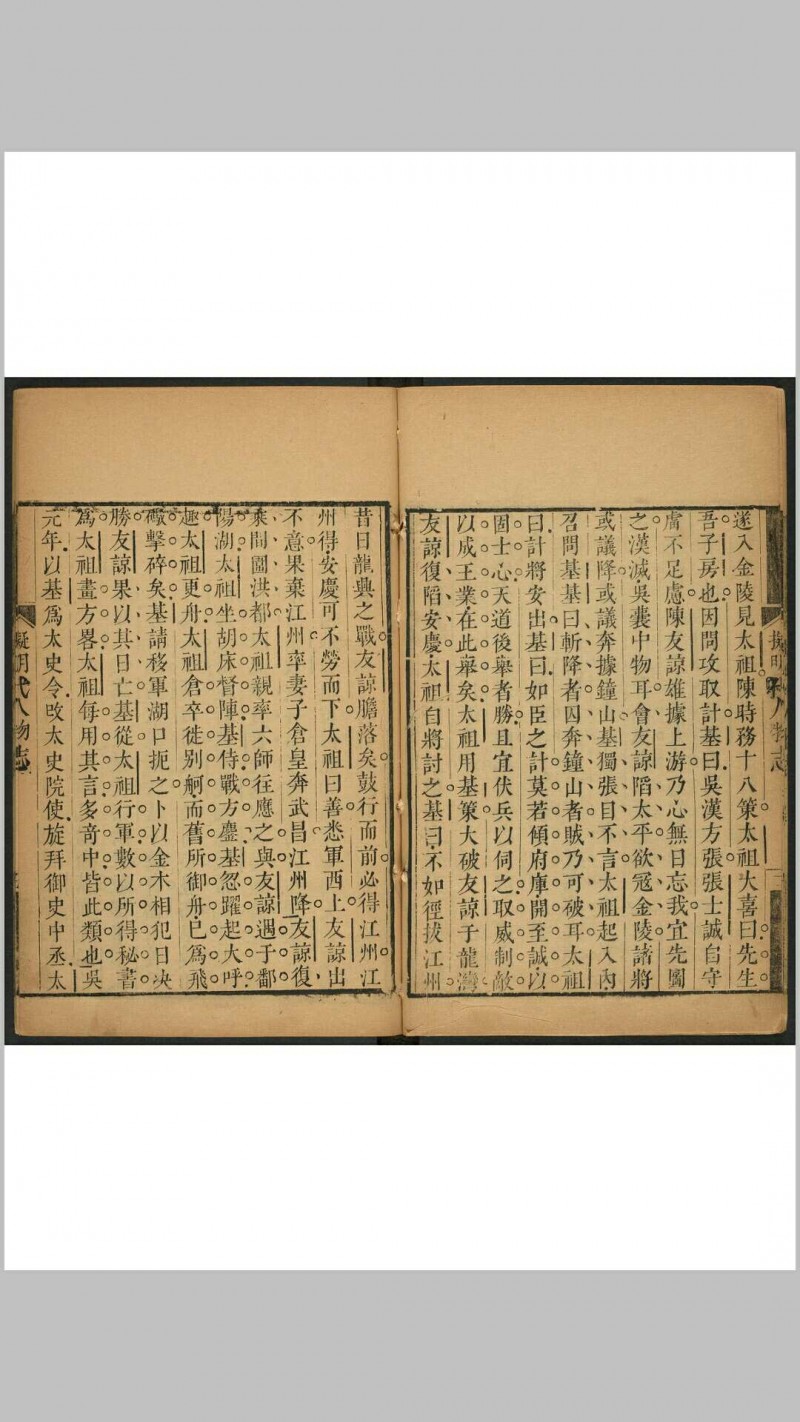 遂入金陵見太祖陳時務十八策太祖大喜曰先生
吾子房也因問攻取計基曰吳漢方張張士誠自守
虜不足慮陳友諒雄據上游乃心無日忘我宜先圖
之漢滅吳囊中物耳會友諒陷太平欲寇金陵諸將
或議降或議奔據鐘山基獨張目不言太祖起入內
召問基基曰斬降者囚奔鐘山者賊乃可破耳太祖
曰計將安出基曰如臣之計莫若傾府庫開至誠以
固士心天道後舉者勝且宜伏兵以伺之取威制敵
以成王業在此舉矣太祖用基策大破友諒于龍灣
友諒復陷安慶太祖自將討之基曰不如徑拔江州
昔日龍興之戰友諒膽落矣鼓行而前必得江州江
州得安慶可不勞而下太祖曰善悉軍西上友諒出
不意果棄江州率妻子倉皇奔武昌江州降友諒復
乘間圍洪都太祖親率六師往應之與友諒遇于鄱
陽湖太祖坐胡床督陣基侍戰方鏖基忽躍起大呼
趣太祖更舟太祖倉卒徙別舸而舊所御舟已為飛
礮擊碎矣基請移軍湖口扼之卜以金木相犯日決
勝友諒果以其日亡基從太祖行軍數以所得秘書
為太祖畫方畧太祖每用其言多奇中皆此類也吳
元年以基為太史令改太史院使旋拜御史中丞太
擬明代人物志